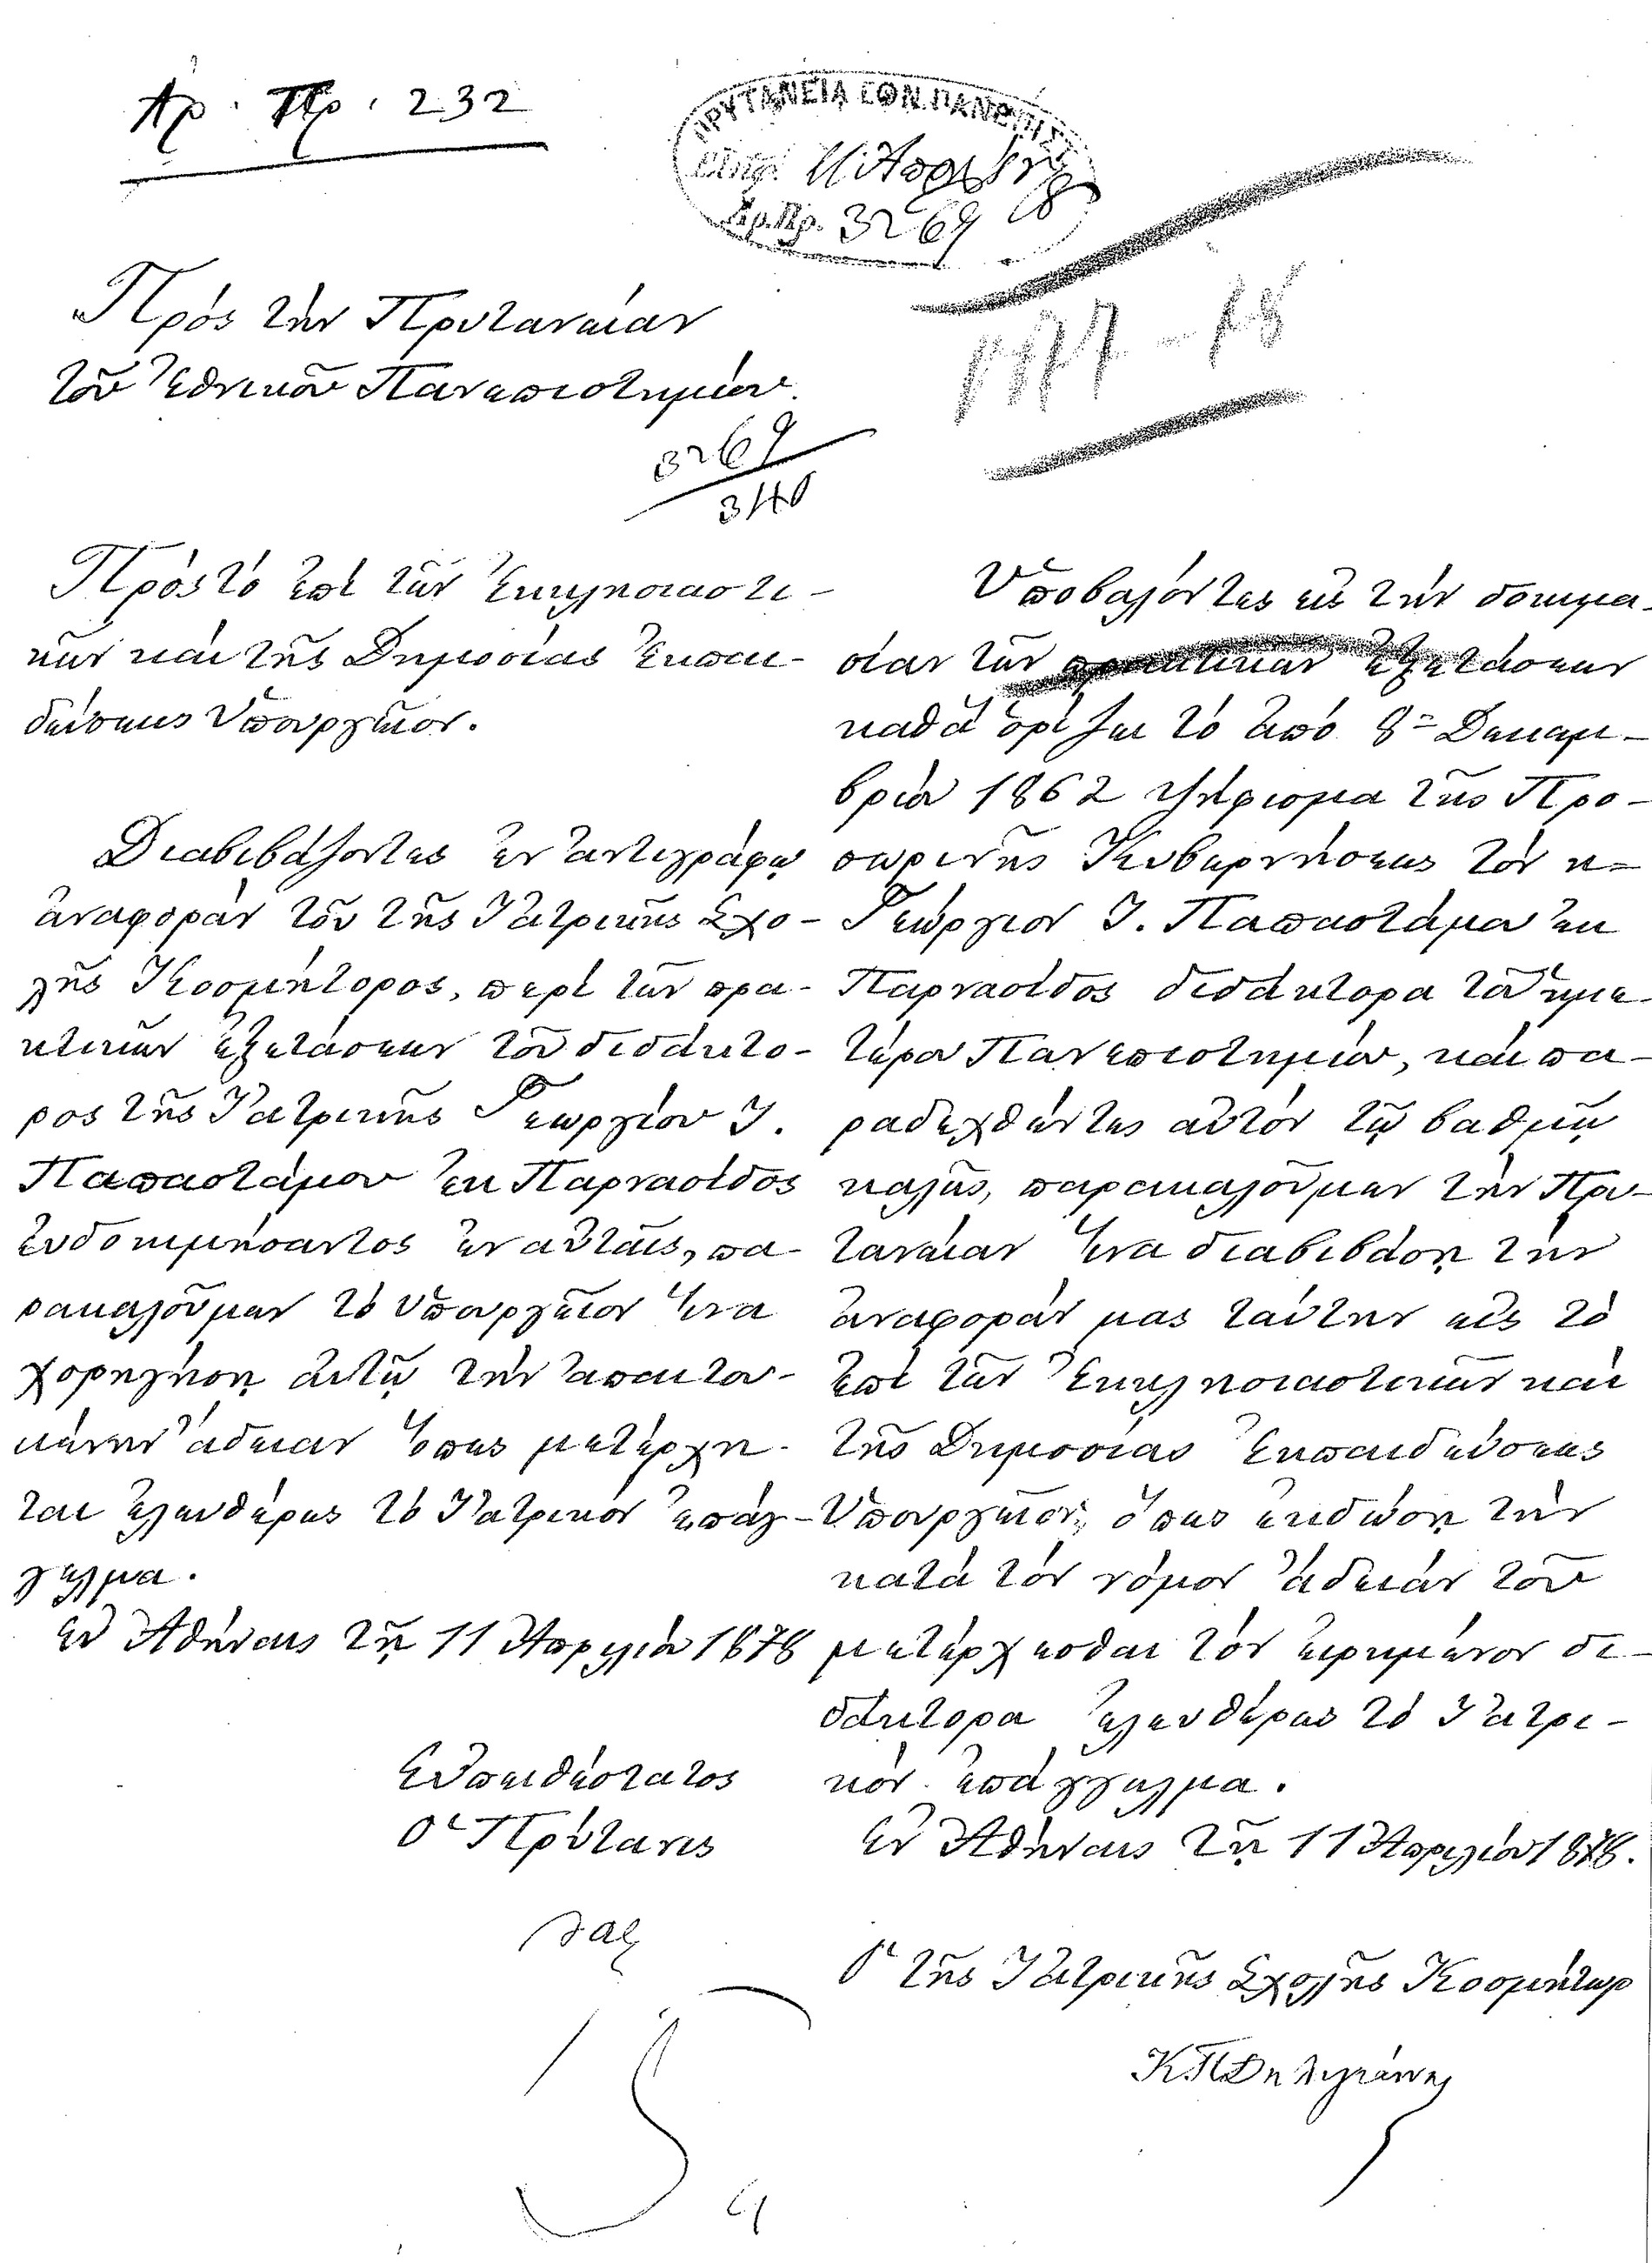 Αρ. Πρ. 232
ΠΡΥΤΑΝΕΙΑ ΕΘΝ. ΠΑΝΕΠΙΣ
Αρ.Πρ. 3269
1877-78
Πρὸς τὴν Πρυτανείαν
τοῦ Ἐθνικοῦ Πανεπιστημίου.
3269
Πρὸς τὸ ἐπὶ τῶν Ἐκκλησιαστι-
κῶν καὶ τῆς Δημοσίας Ἐκπαι-
δεύσεως Ὑπουργεῖον.
Διαβιβάζοντες ἐν ἀντιγράφῳ
ἀναφορὰν τοῦ τῆς Ἰατρικῆς Σχο-
λῆς Κοσμήτορος, περὶ τῶν πρα-
κτικῶν ἐξετάσεων τοῦ διδάκτο-
ρος τῆς Ἰατρικῆς Γεωργίου Ι.
Παπαστάμου ἐκ Παρνασίδος
εὐδοκιμήσαντος ἐν αὐταῖς, πα-
ρακαλοῦμεν τὸ Ὑπουργεῖον ἵνα
χορηγήσῃ αὐτῷ τὴν ἀπαιτου-
μένην ἄδειαν ὅπως μετέρχη-
ται ἐλευθέρως τὸ Ἰατρικὸν ἐπάγ-
γελμα.
Ἐν Ἀθήναις τῇ 11 Ἀπριλίου 1878
Εὐπειθέστατος
Ὁ Πρύτανις
Ὑποβαλόντες εἰς τὴν δοκιμα-
σίαν τῶν πρακτικῶν ἐξετάσεων
καθὰ ὁρίζει τὸ ἀπὸ 8 Δεκεμ-
βρίου 1862 ψήφισμα τῆς Προ-
σωρινῆς Κυβερνήσεως τὸν κ=
Γεώργιον Ι. Παπαστάμου ἐκ
Παρνασίδος διδάκτορα τοῦ ἡμε-
τέρου Πανεπιστημίου, καὶ πα-
ραδεχθέντες αὐτὸν τῷ βαθμῷ
καλῶς, παρακαλοῦμεν τὴν Πρυ-
τανείαν ἵνα διαβιβάσῃ τὴν
ἀναφοράν μας ταύτην εἰς τὸ
ἐπὶ τῶν Ἐκκλησιαστικῶν καὶ
τῆς Δημοσίας Ἐκπαιδεύσεως
Ὑπουργεῖον, ὅπως ἐκδώσῃ τὴν
κατὰ τὸν νόμον ἄδειαν τοῦ
μετέρχεσθαι τὸν εἰρημένον δι-
δάκτορα ἐλευθέρως τὸ Ἰατρι-
κὸν ἐπάγγελμα.
Ἐν Ἀθήναις τῇ 11 Ἀπριλίου 1878.
Ὁ τῆς Ἰατρικῆς Σχολῆς Κοσμήτωρ
Κ Π Δηλιγιάννης